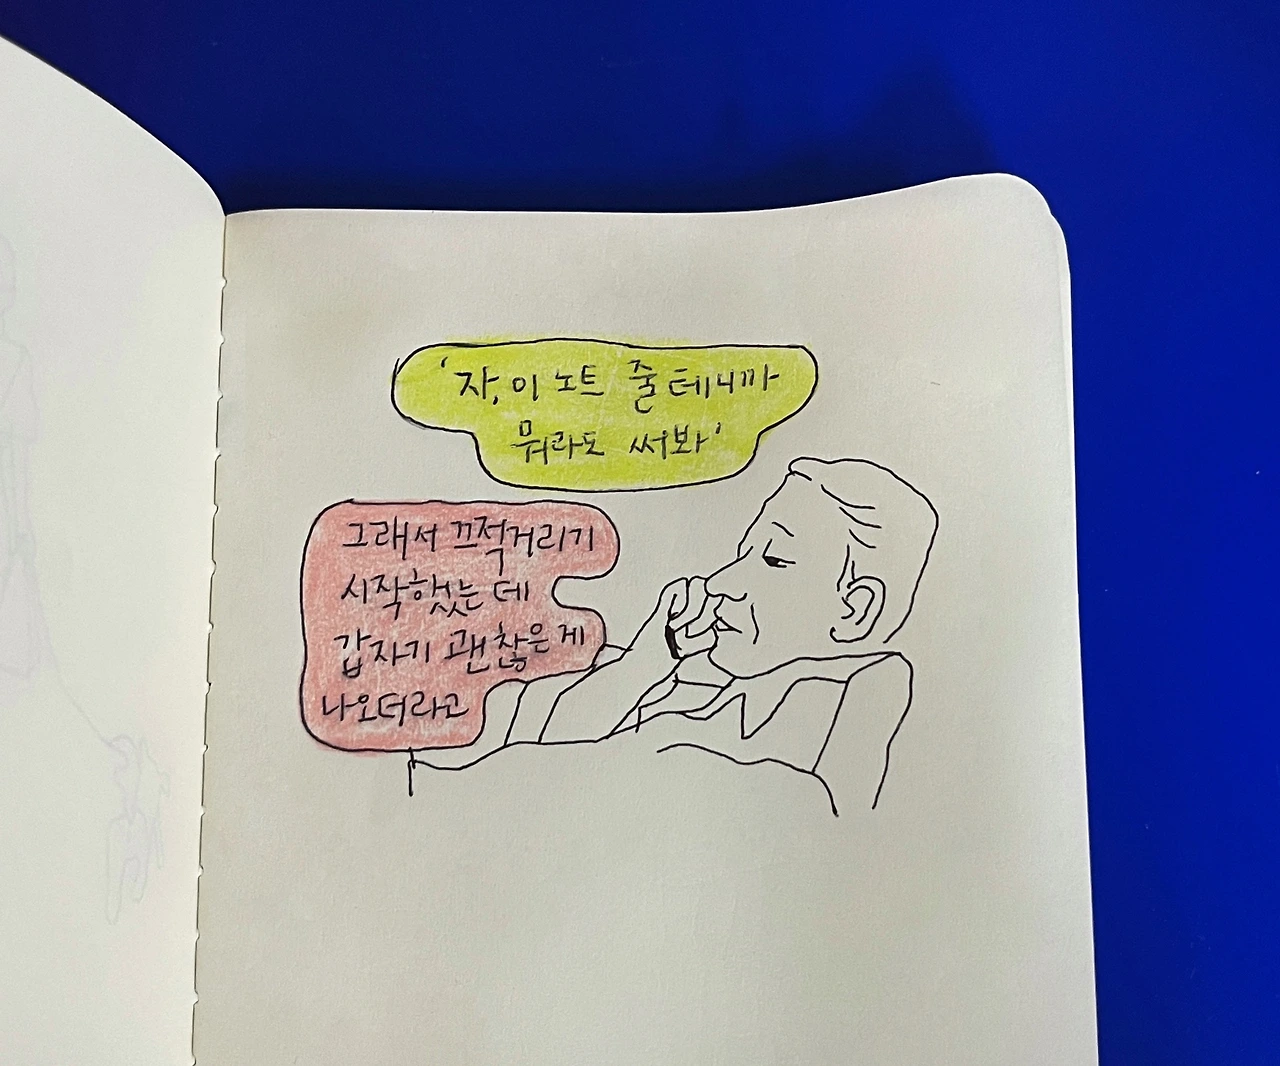 '자, 이 노트 줄테니까
뭐라도 써봐'
그래서 끄적거리기
시작했는 데
갑자기 괜찮은 게
나오더라고